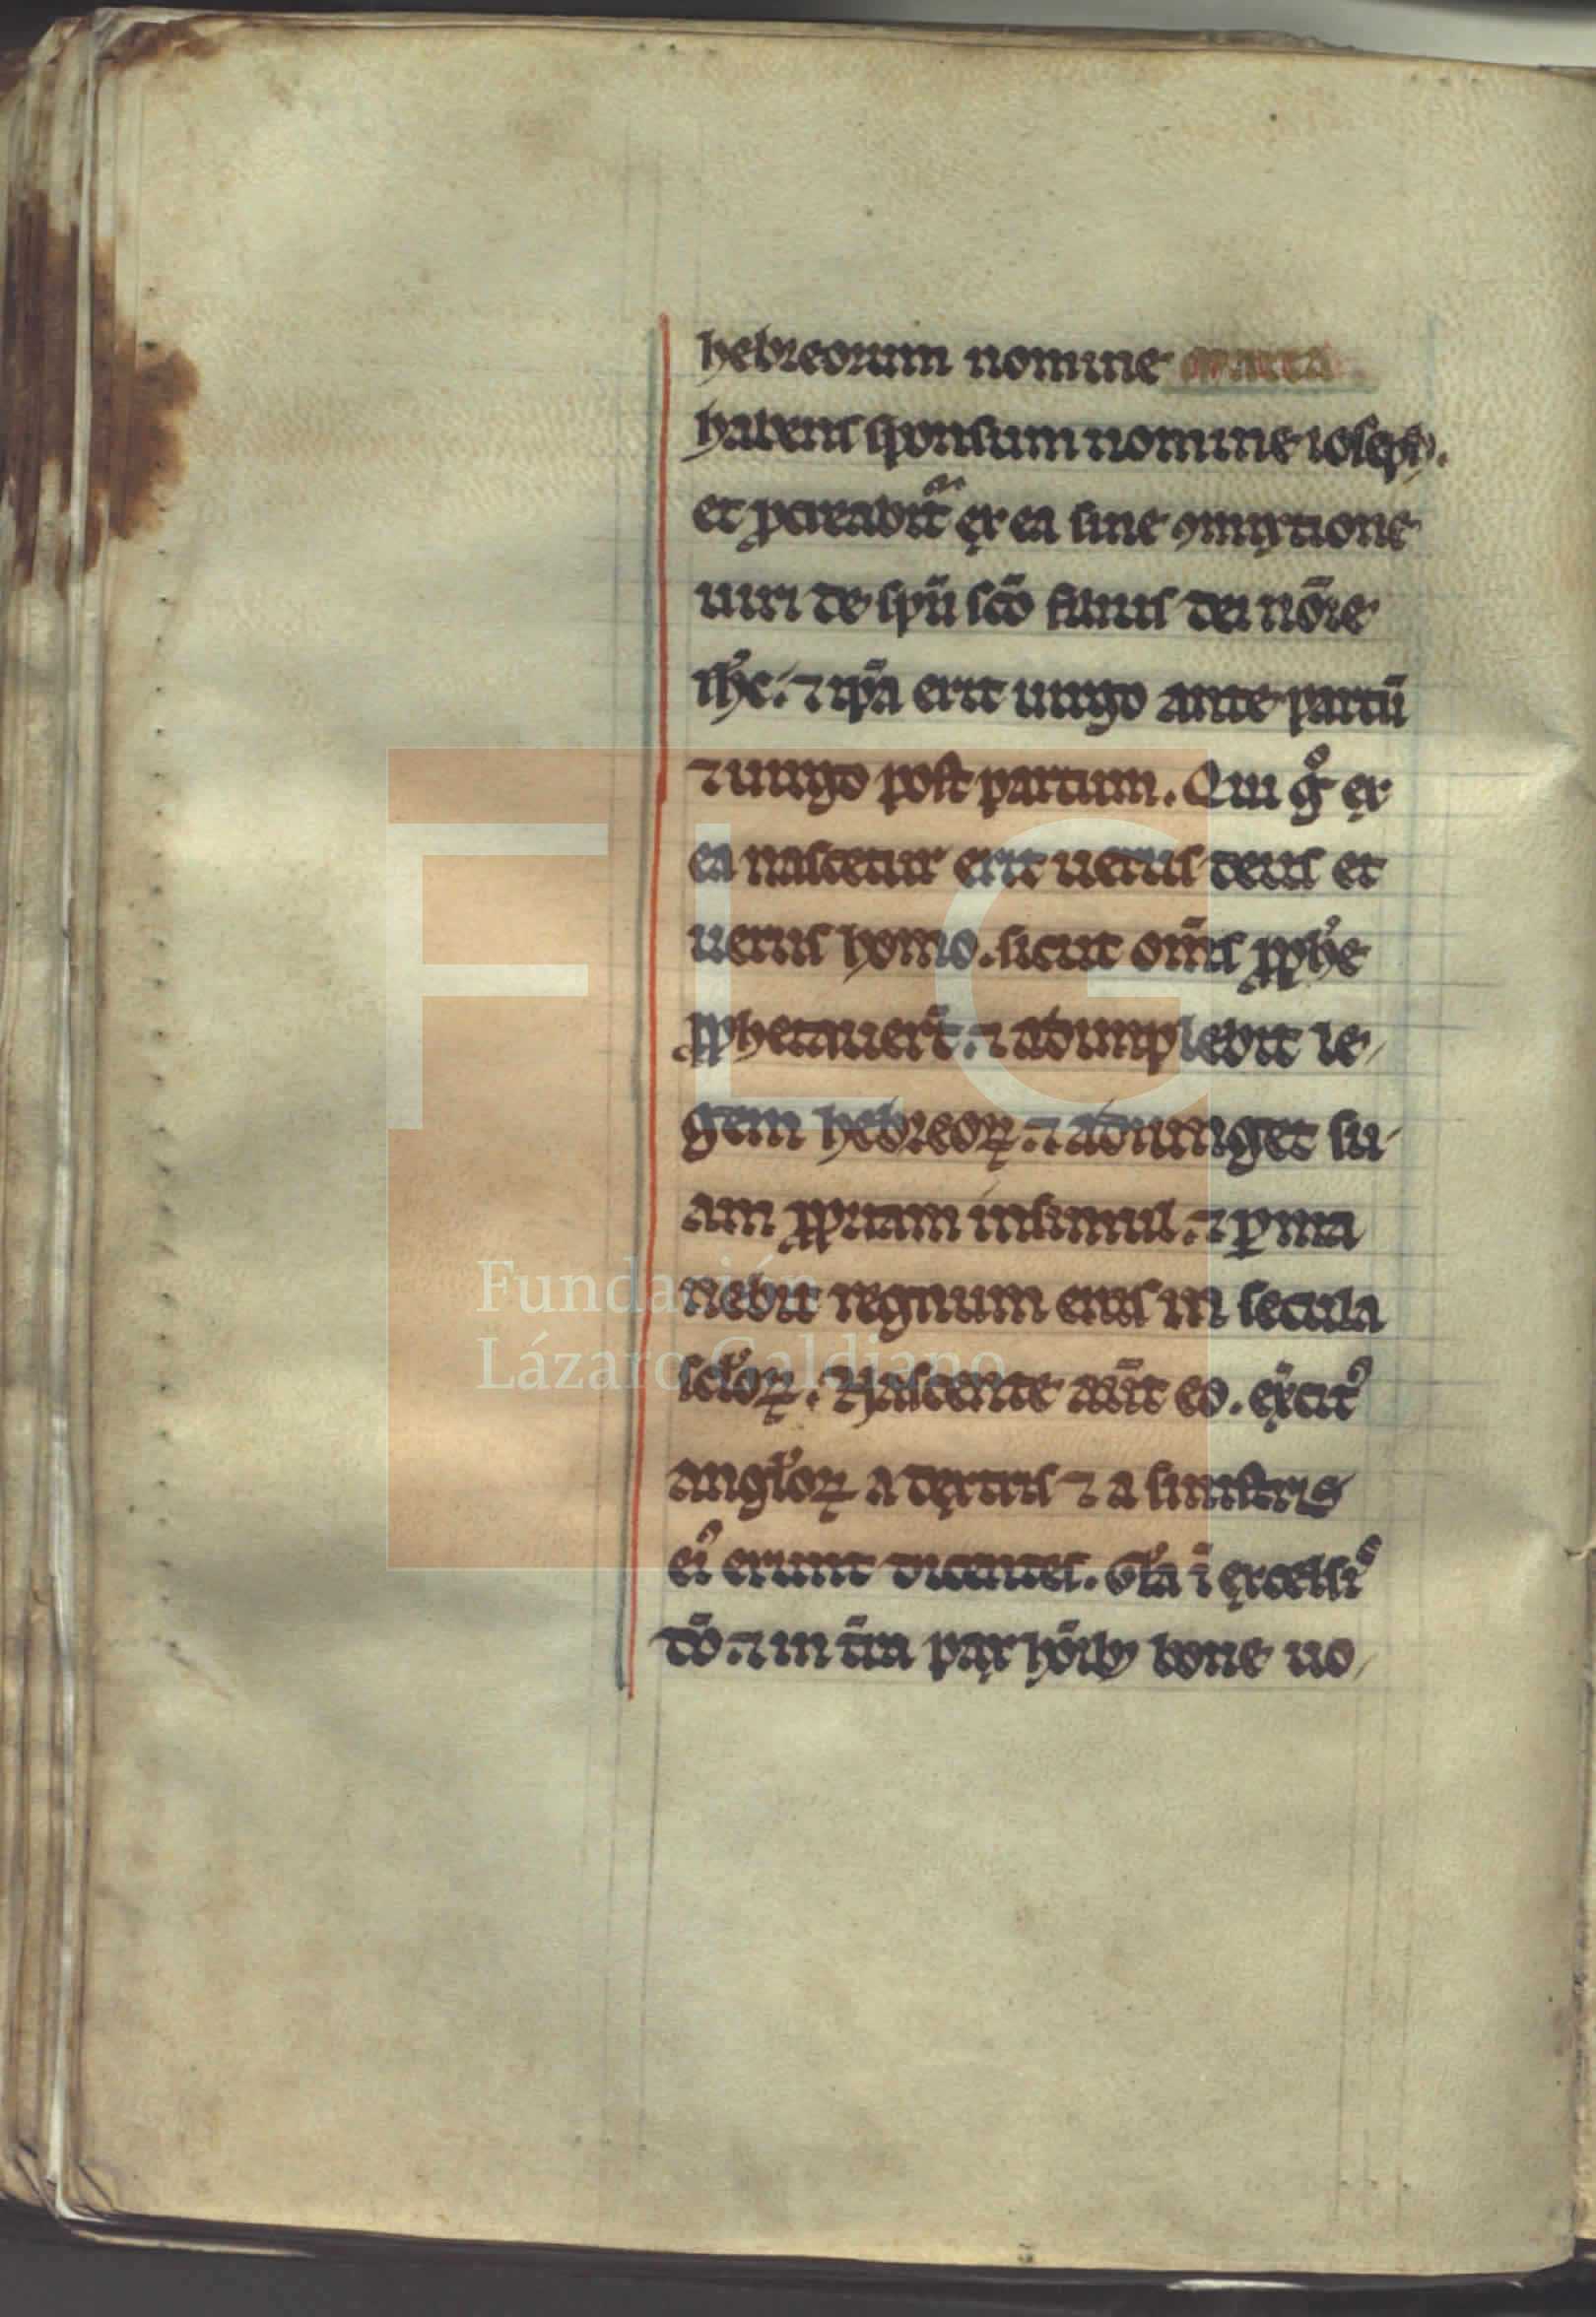 hebreorum nomine maria
habens sponsum nomine ioseph.
et ꝓcreabit̃ ex ea sine ꝯmixtione
uiri de spũ sc̃o filius dei nõie
ih̓c. ⁊ ip̃a erit uirgo ante partũ
⁊ uirgo post partum. Qui gͦ ex
ea nascetur erit uerus deus et
uerus homo. sicut om̃s ꝓph̓e
ꝓphetauer̃t. ⁊ adimplebit le-
gem hebreoꝝ. ⁊ adiunget su-
am ꝓpriam insimul. ⁊ ꝑma
nebit regnum eius in secula
scl̓oꝝ. Nascente aũt eo. exc̓it᷒
angl̓oꝝ a dextris ⁊ a sinistris
ei᷒ erunt dicentes. Gl̓a ĩ excelsi᷒
dõ. ⁊ in t̃ra pax hõibꝫ bone uo-
Fundación
Lázaro Galdiano
FLG